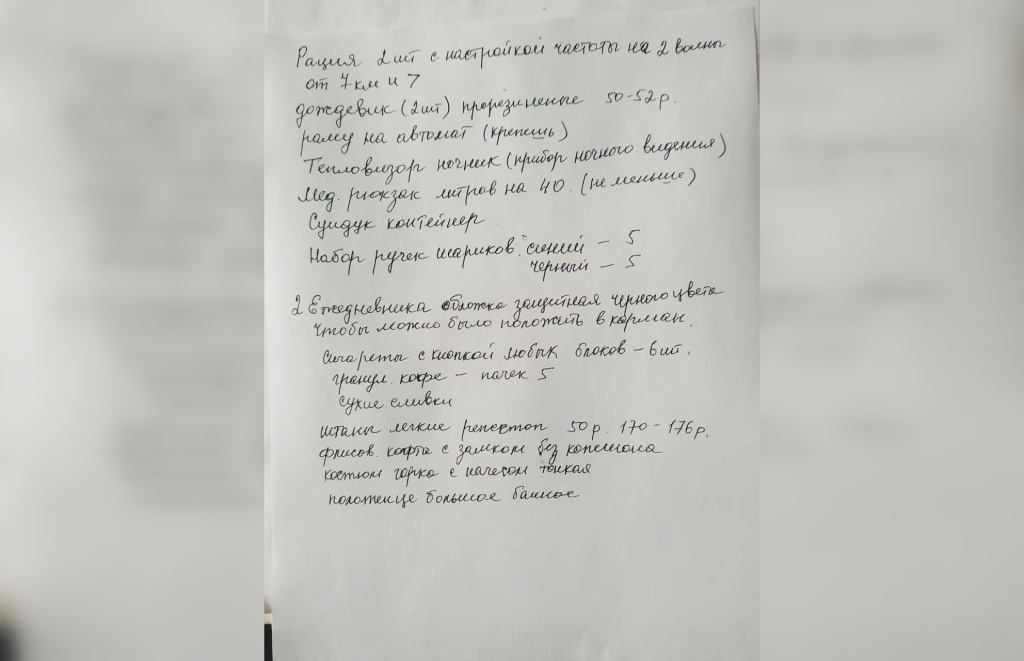 Рация 2шт с настройкой частоты на 2 волны
от 7 км и >
дождевик (2шт) прорезиненые 50-52р.
раму на автомат (крепешь)
Тепловизор ночник (прибор ночного видения)
Мед. рюкзак литров на 40. (не меньше)
Сундук контейнер
Набор ручек шариков. синий - 5
черный - 5
2 Ежедневника обложка защитная черного цвета
чтобы можно было положить в карман.
Сигареты с кнопкой любых блоков - 6 шт.
гранул. кофе - пачек 5
Сухие сливки
штаны легкие репстоп 50р. 170-176р.
флисов. кофта с замком без капюшона
костюм горка с начесом тонкая
полотенце большое банное